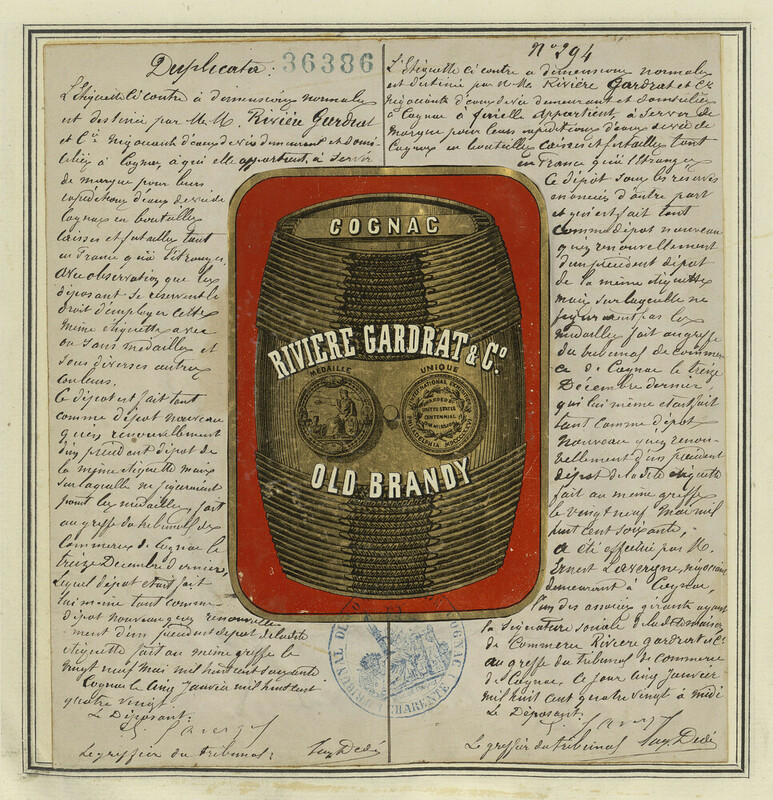 Duplicata: 36386
L'Etiquette ci contre à dimensions normales
est destinée par M.M. Rivière Gardrat
et Cie négociants d'eaux de vie demeurant et domi-
ciliés à Cognac, à qui elle appartient, à servir
de marque pour leurs
expéditions d'eaux de vie de
Cognac en bouteilles
caisses et futailles tant
en France qu'à l'étranger,
avec observation que les
déposant se réservent le
droit d'employer cette
même étiquette avec
ou sans médailles et
sous diverses autres
couleurs.
Ce dépôt est fait tant
comme dépôt nouveau
qu'en renouvellement
d'un précédent dépôt de
la même étiquette mais
sur laquelle ne figuraient
point les médailles, fait
au greffe du tribunal de
Commerce de Cognac le
treize Décembre dernier,
lequel dépôt était fait
lui même tant comme
dépôt nouveau qu'en renouvelle-
ment d'un précédent dépôt de la dite
étiquette fait au même greffe le
vingt neuf mai mil huit cent soixante
Cognac le cinq Janvier mil huit cent
quatre vingt.
Le Déposant:
Le greffier du tribunal:
No 294
L'Etiquette ci contre à dimensions normales
est destinée par M.M. Rivière Gardrat et Cie
négociants d'eaux de vie demeurant et domiciliés
à Cognac à qui elle appartient, à servir de
marque pour leurs expéditions d'eaux de vie de
Cognac en bouteilles caisses et futailles tant
en France qu'à l'étranger
Ce dépôt sous les réserves
énoncées d'autre part
et qui est fait tant
comme dépôt nouveau
qu'en renouvellement
d'un précédent dépôt
de la même étiquette
mais sur laquelle ne
figuraient pas les
médailles fait au greffe
du tribunal de commer-
ce de Cognac le treize
Décembre dernier,
qui lui même était fait
tant comme dépôt
nouveau qu'en renou-
vellement d'un précédent
dépôt de la dite étiquette
fait au même greffe
le vingt neuf mai mil
huit cent soixante,
a été effectué par M.
Ernest Lavergne, négociant
demeurant à Cognac,
l'un des associés gérants ayant
la signature sociale de la dite maison
de Commerce Rivière gardrat et Cie
au greffe du tribunal de commerce
de Cognac, ce jour cinq Janvier
mil huit cent quatre vingt à midi
Le Déposant:
Le greffier du tribunal
COGNAC
RIVIÈRE GARDRAT & Co.
MÉDAILLE UNIQUE
INTERNATIONAL EXHIBITION
AWARDED BY
UNITED STATES
CENTENNIAL
COMMISSION
PHILADELPHIA MDCCCLXXVI
OLD BRANDY
COGNAC
CHARENTE